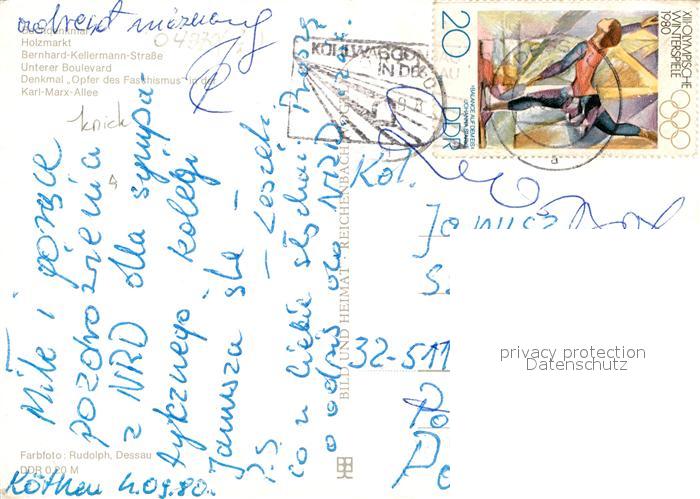 Holzmarkt
Bernhard-Kellermann-Straße
Unterer Boulevard
Denkmal „Opfer des Faschismus" in der
Karl-Marx-Allee
knick
Miłe i gorące
pozdrowienia
z NRD dla sympa
tycznego kolegi
Janusza śle -
- Leszek
P.S.
co u Ciebie słychać. Proszę
o odpis do NRD
Köthen 4.09.80.
Farbfoto: Rudolph, Dessau
DDR 0,20 M
BILD UND HEIMAT REICHENBACH
KÜHLWAGGO
IN DE
20
DDR
XIII. OLYMPISCHE
WINTERSPIELE
1980
a
Kol.
Janusz
S.
32-511
privacy protection
Datenschutz